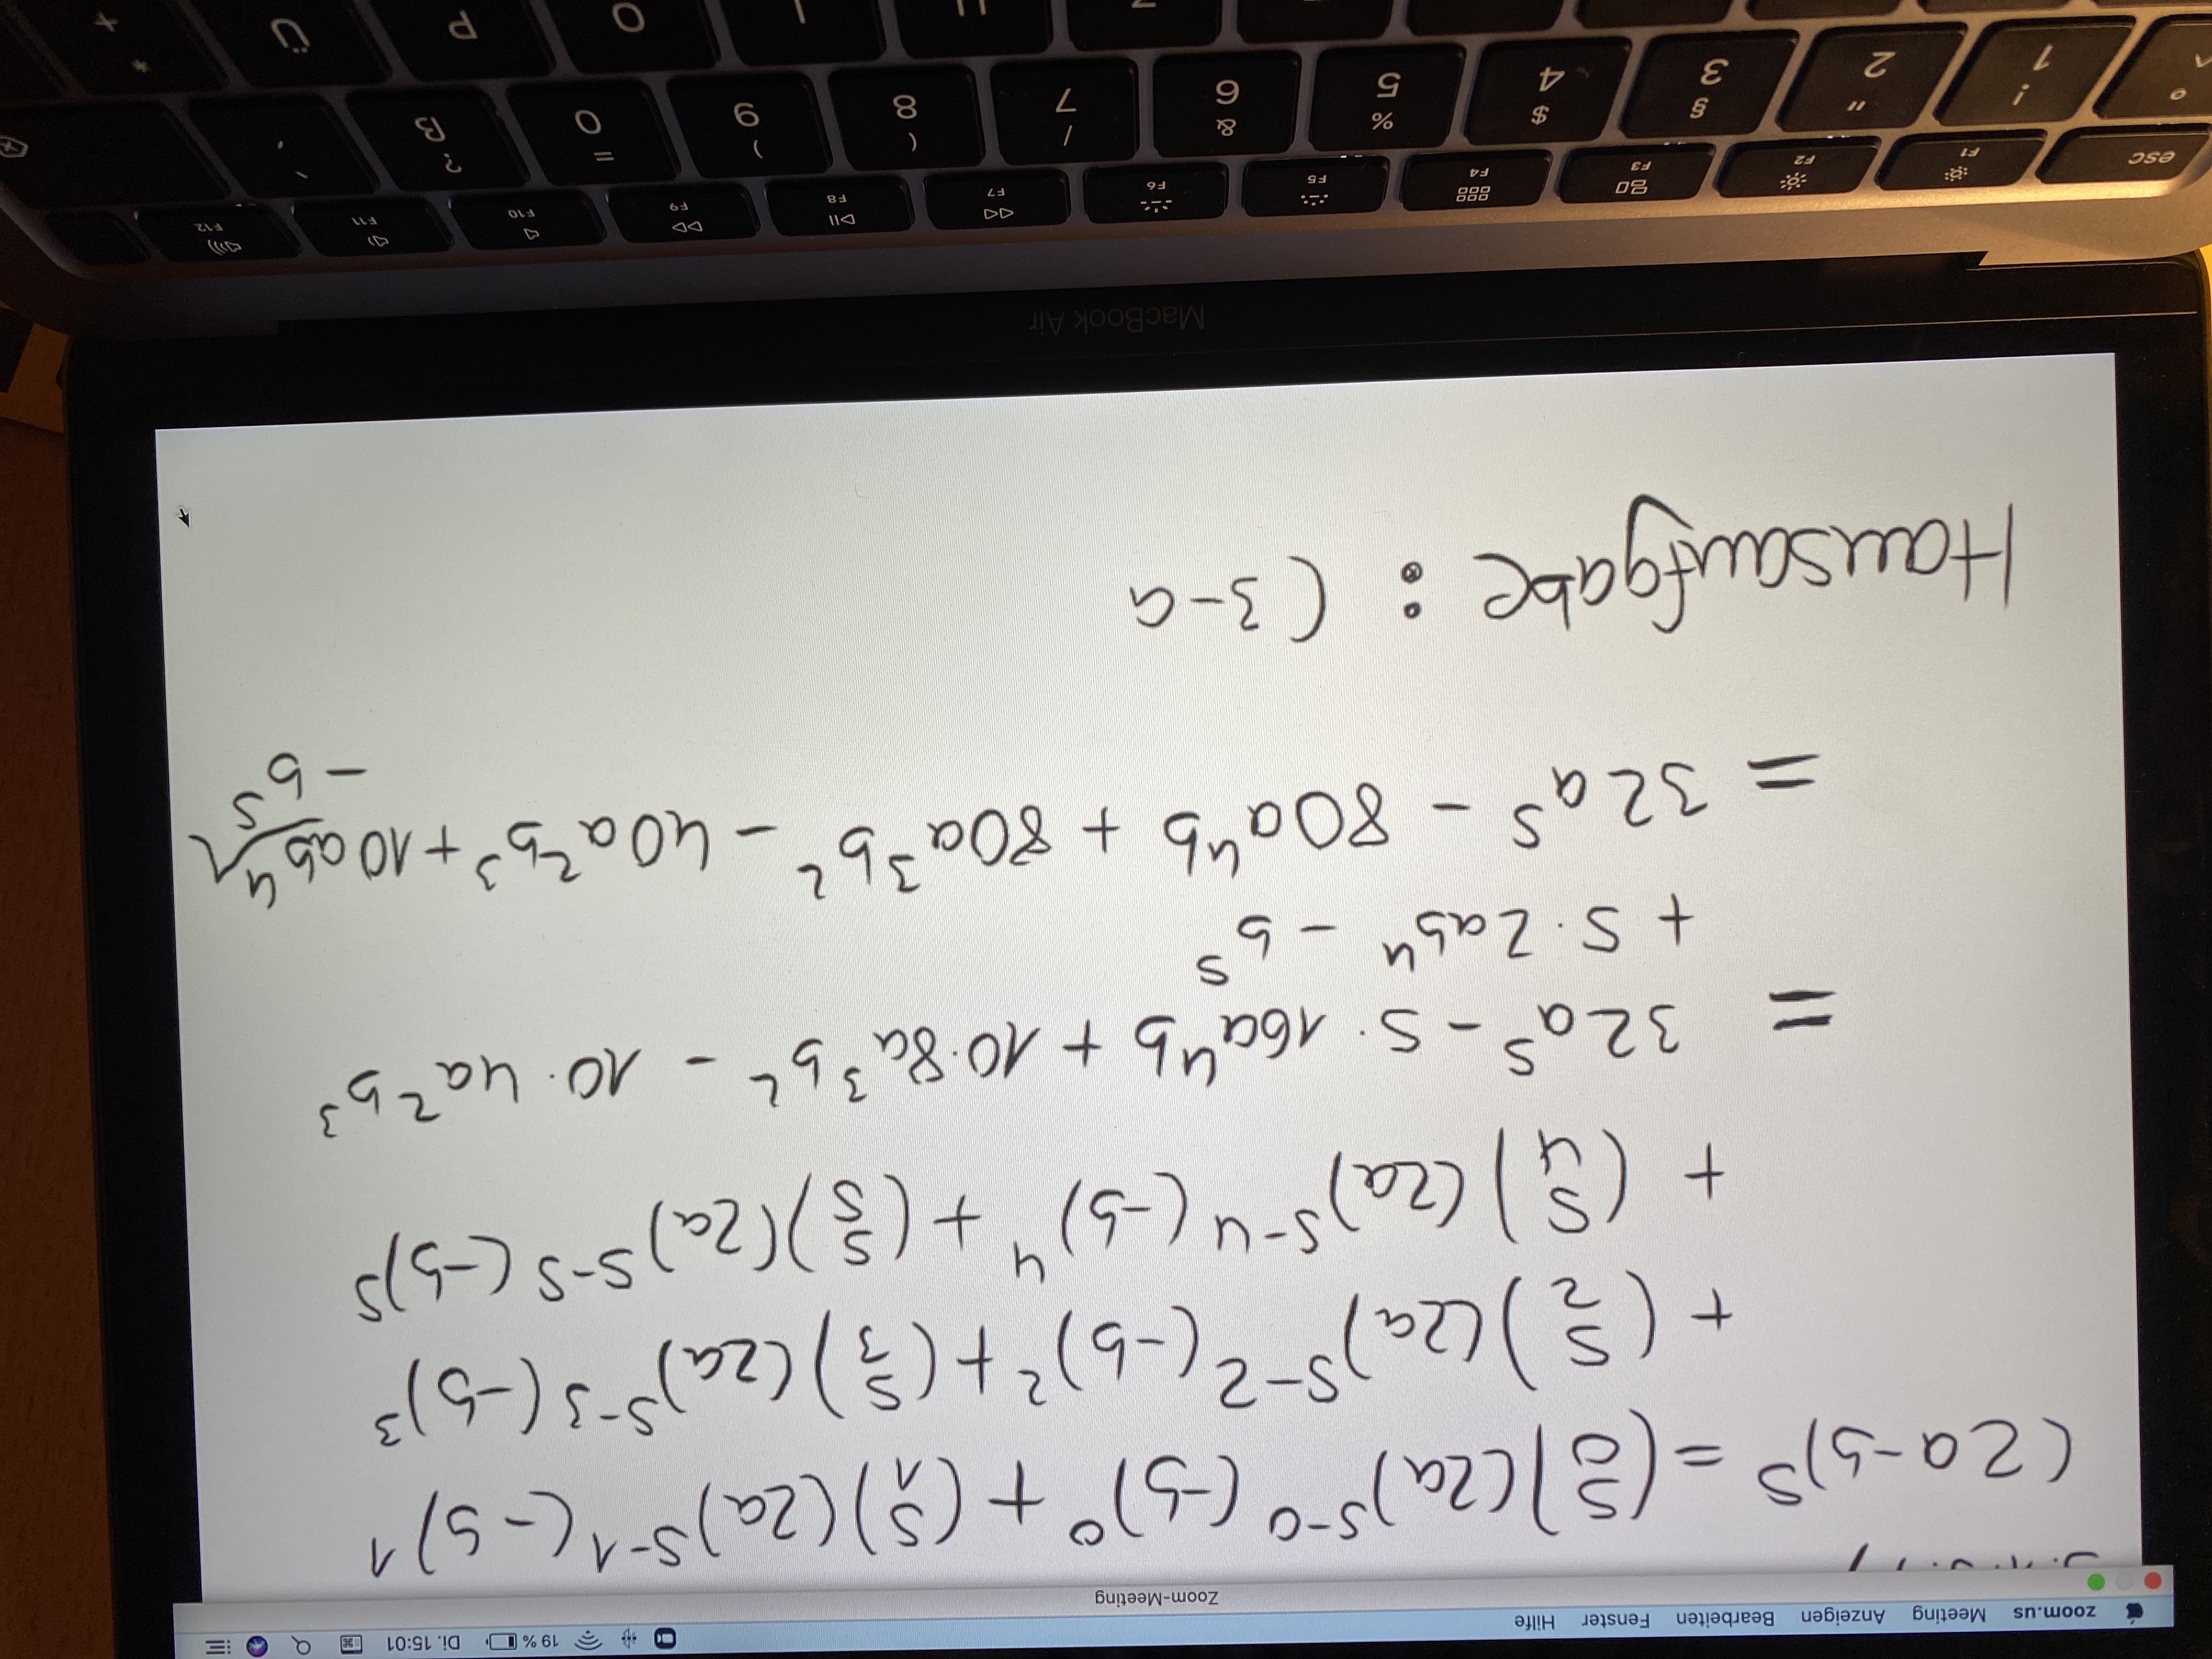 zoom.us Meeting Anzeigen Bearbeiten Fenster Hilfe 19 % Di. 15:01
Zoom-Meeting
(2a-b)⁵ = (5 0)(2a)⁵⁻⁰(-b)⁰ + (5 1)(2a)⁵⁻¹(-b)¹
+ (5 2)(2a)⁵⁻²(-b)² + (5 3)(2a)⁵⁻³(-b)³
+ (5 4)(2a)⁵⁻⁴(-b)⁴ + (5 5)(2a)⁵⁻⁵(-b)⁵
= 32a⁵ - 5·16a⁴b + 10·8a³b² - 10·4a²b³
+ 5·2ab⁴ - b⁵
= 32a⁵ - 80a⁴b + 80a³b² - 40a²b³ + 10ab⁴
- b⁵
Hausaufgabe : (3-a
MacBook Air
esc F1 F2 F3 F4 F5 F6 F7 F8 F9 F10 F11 F12
° ! " § $ % & / ( ) = ? `
^ 1 2 3 4 5 6 7 8 9 0 ß ´
O P Ü * +